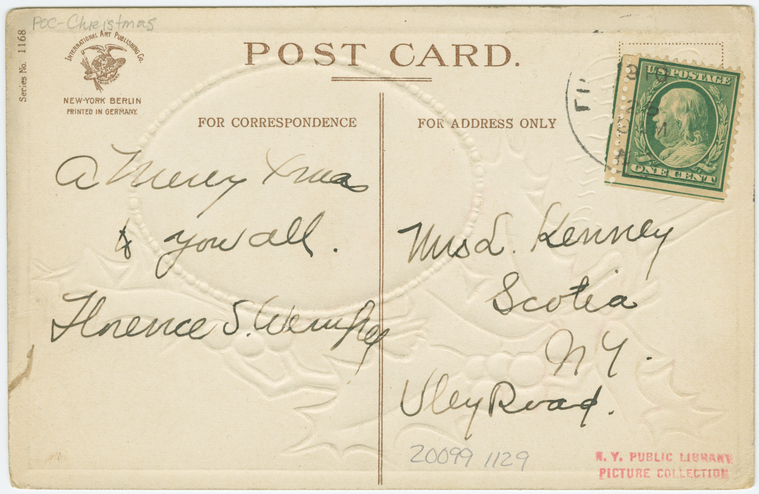 POC-Christmas
Series No. 1168
INTERNATIONAL ART PUBLISHING CO.
NEW-YORK BERLIN
PRINTED IN GERMANY.
POST CARD.
FOR CORRESPONDENCE
FOR ADDRESS ONLY
U.S. POSTAGE
ONE CENT
A Merry Xmas
& you all.
Florence S.
Mrs L. Kenney
Scotia
NY.
Vley Road.
20099 1129
N. Y. PUBLIC LIBRARY
PICTURE COLLECTION